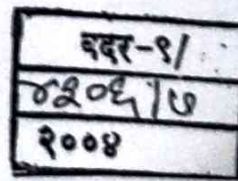 बदर-१/
४२०६/७
२००४